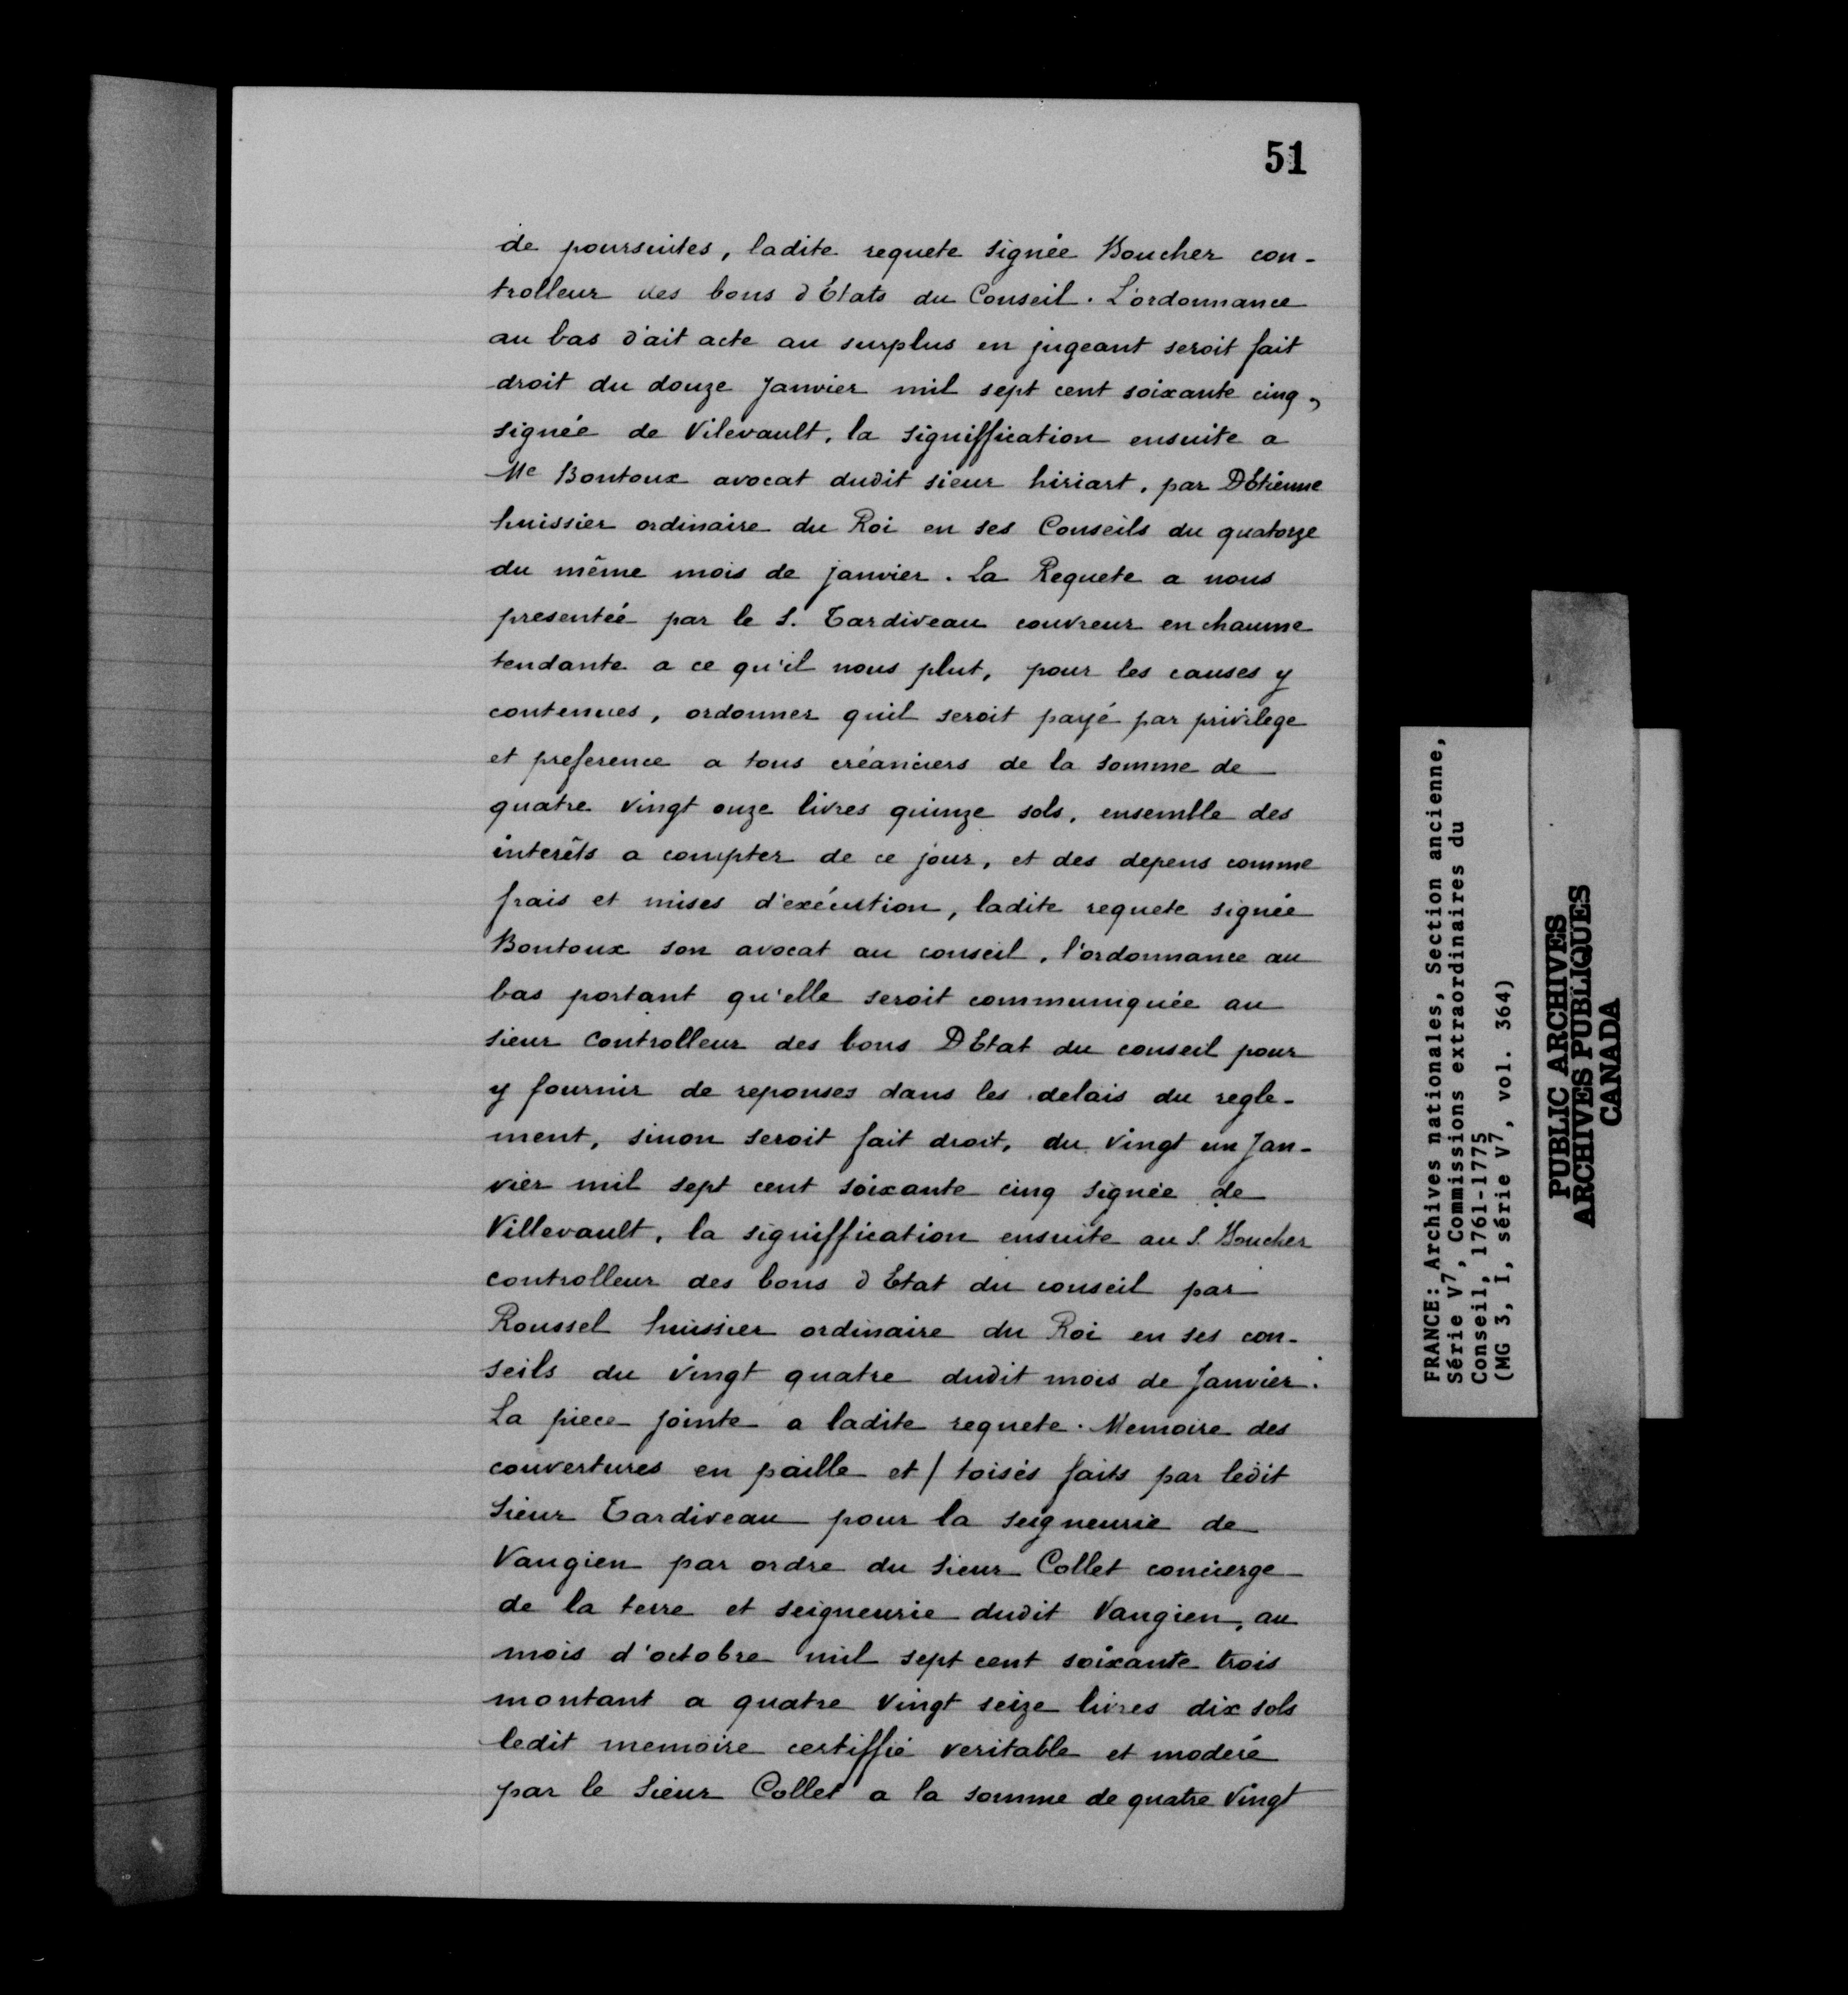 51
de poursuites, ladite requete signée Boucher con-
trolleur des bons d Etats du Conseil. L'ordonnance
au bas d'ait acte au surplus en jugeant seroit fait
droit du douze Janvier mil sept cent soixante cinq,
signée de Vilevault, la signiffication ensuite a
Me Bontoux avocat dudit sieur hiriart, par DEtienne
huissier ordinaire du Roi en ses Conseils du quatorze
du même mois de janvier. La Requete a nous
presentée par le S. Tardiveau couvreur en chaume
tendante a ce qu'il nous plut, pour les causes y
contenues, ordonner quil seroit payé par privilege
et preference a tous créanciers de la somme de
quatre vingt onze livres quinze sols, ensemble des
interêts a compter de ce jour, et des depens comme
frais et mises d'exécution, ladite requete signée
Bontoux son avocat au conseil, l'ordonnance au
bas portant qu'elle seroit communiquée au
sieur Controlleur des bons D Etat du conseil pour
y fournir de reponses dans les delais du regle-
ment, sinon seroit fait droit, du vingt un Jan-
vier mil sept cent soixante cinq signée de
Villevault, la signiffication ensuite au S. Boucher
controlleur des bons d Etat du conseil par
Roussel huissier ordinaire du Roi en ses con-
seils du vingt quatre dudit mois de Janvier.
La piece jointe a ladite requete. Memoire des
couvertures en paille et / toisés faits par ledit
Sieur Tardiveau pour la seigneurie de
Vaugien par ordre du Sieur Collet concierge
de la terre et seigneurie dudit Vaugien, au
mois d'octobre mil sept cent soixante trois
montant a quatre vingt seize livres dix sols
ledit memoire certiffié veritable et moderé
par le Sieur Collet a la somme de quatre vingt
FRANCE: Archives nationales, Section ancienne,
Série V7, Commissions extraordinaires du
Conseil, 1761-1775
(MG 3, I, série V7, vol. 364)
PUBLIC ARCHIVES
ARCHIVES PUBLIQUES
CANADA